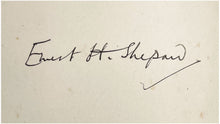 Ernest H. Shepard